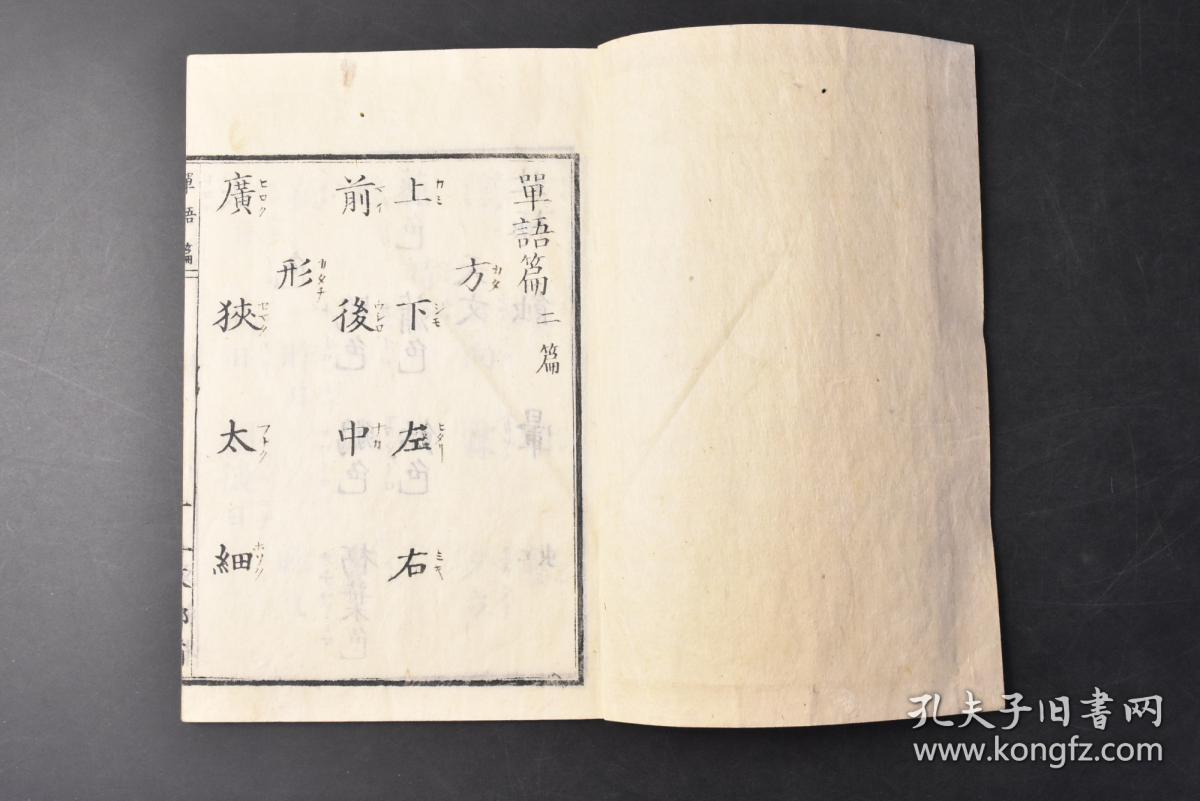 單語篇 二篇
方
カタ
上 下 左 右
カミ シモ ヒダリ ミギ
前 後 中
ウシロ ナカ
形
カタチ
廣 狹 太 細
ヒロク セマク フトク ホソク
單語篇二
文部省
孔夫子旧书网
www.kongfz.com